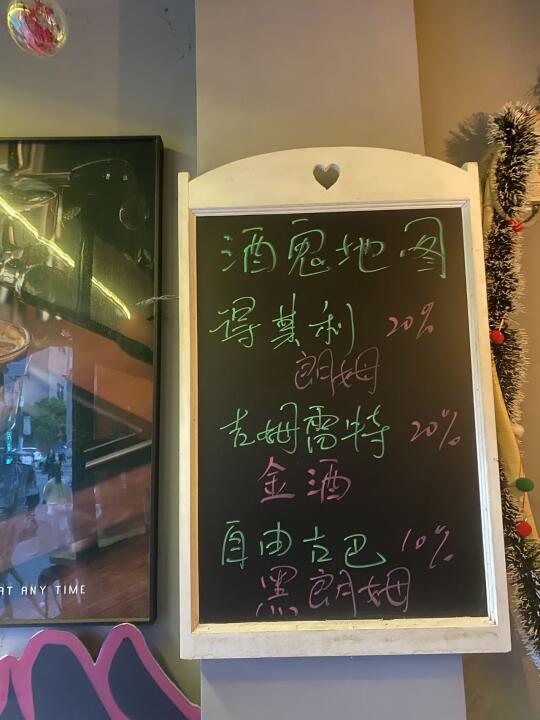 酒鬼地图
得其利 20%
朗姆
吉姆雷特 20%
金酒
自由古巴 10%
黑朗姆
AT ANY TIME